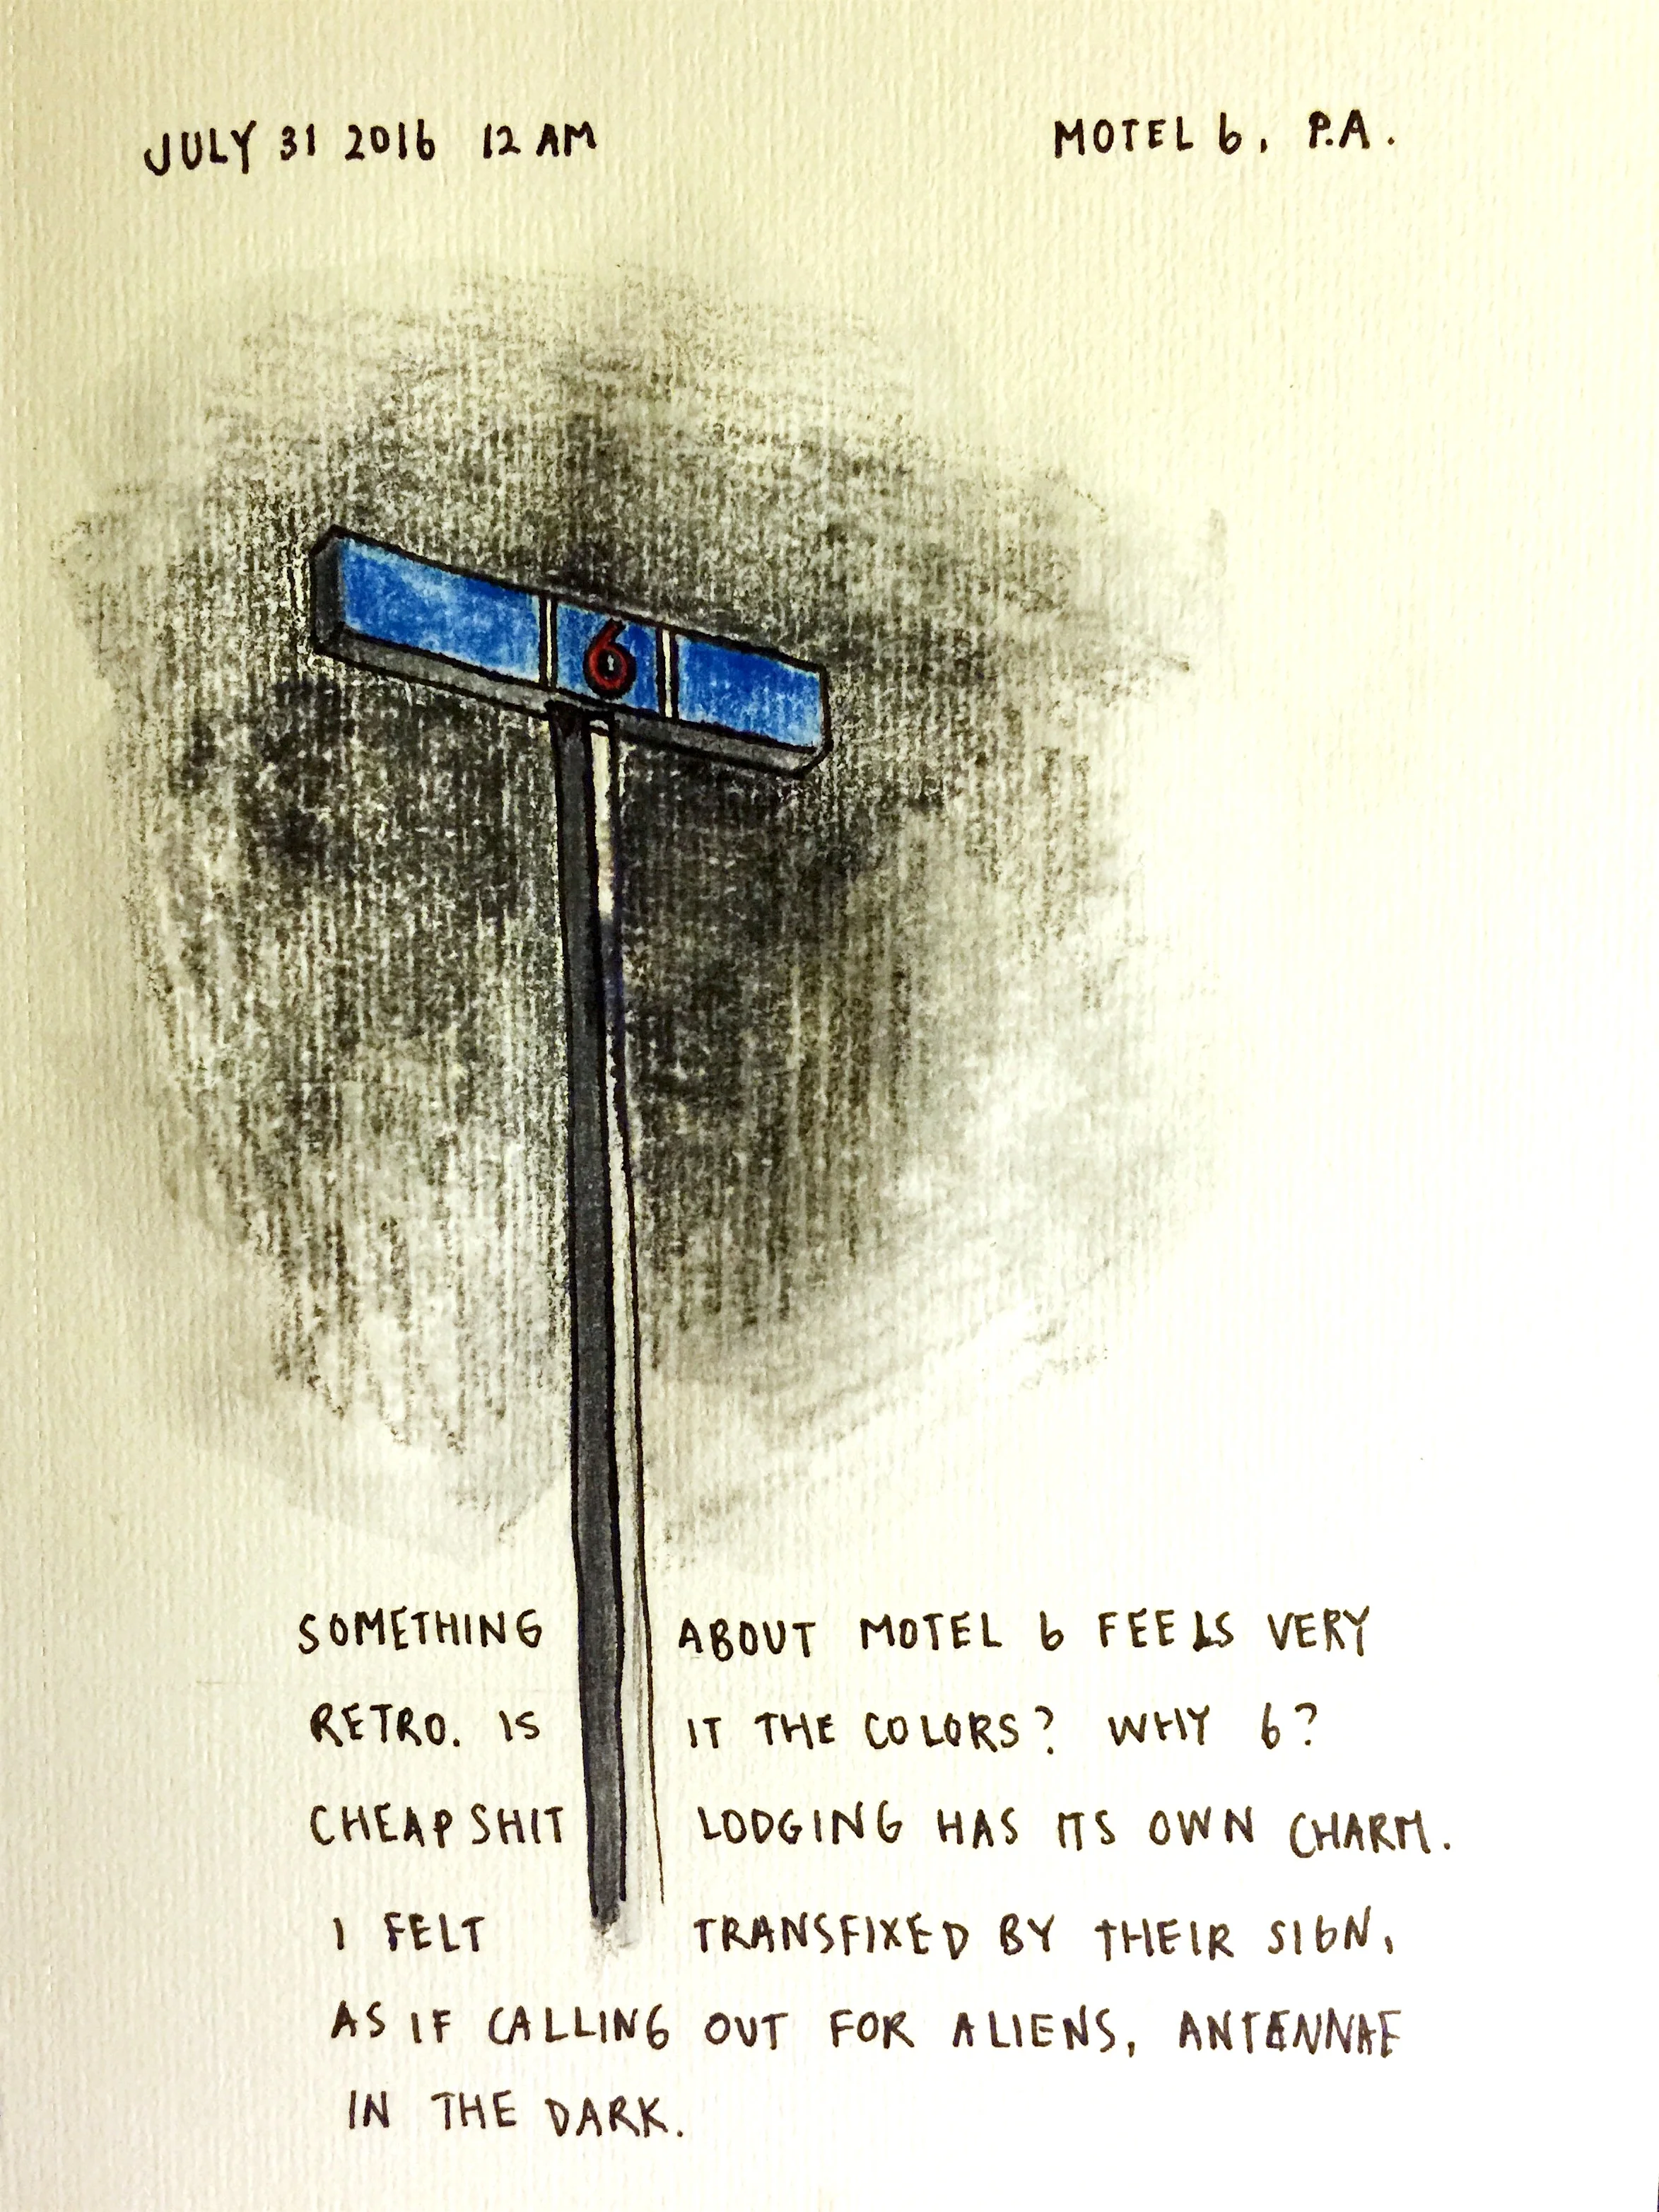 JULY 31 2016 12 AM
MOTEL 6, P.A.
6
SOMETHING ABOUT MOTEL 6 FEELS VERY
RETRO. IS IT THE COLORS? WHY 6?
CHEAP SHIT LODGING HAS ITS OWN CHARM.
I FELT TRANSFIXED BY THEIR SIGN,
AS IF CALLING OUT FOR ALIENS, ANTENNAE
IN THE DARK.